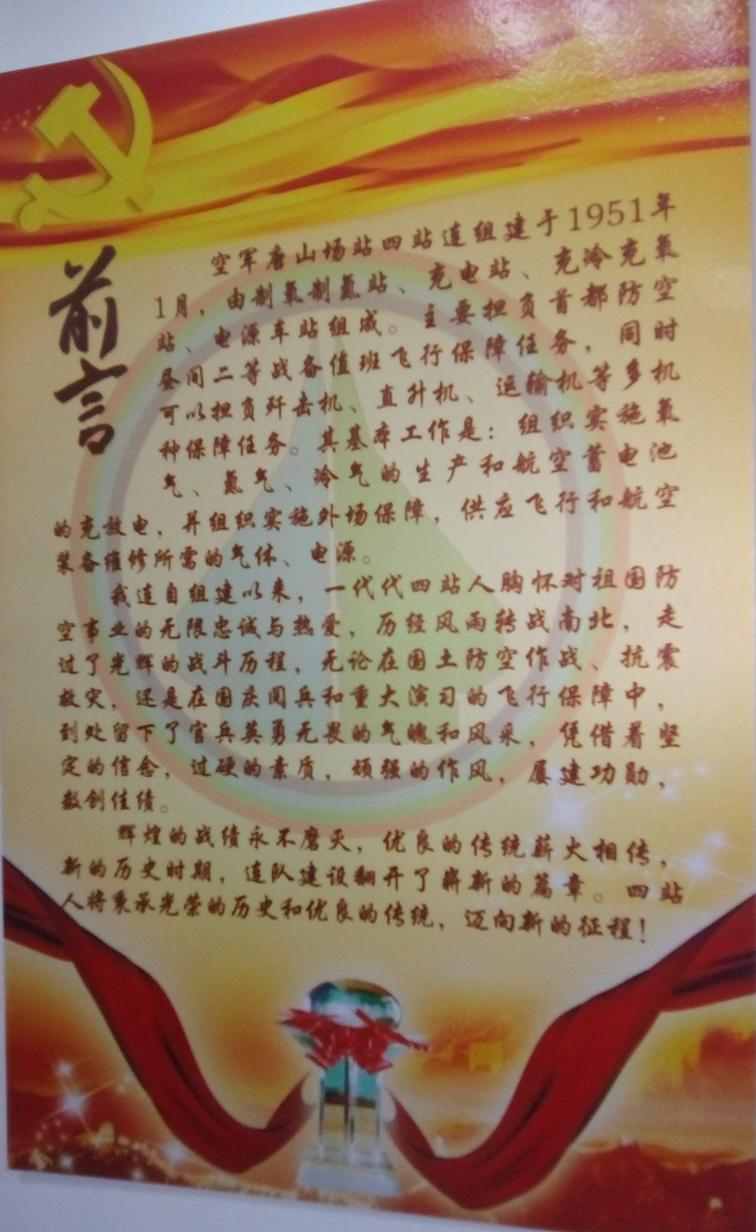 前言
空军唐山场站四站连组建于1951年
1月，由制氧制氮站、充电站、充冷充氧
站、电源车站组成。主要担负首都防空
昼间二等战备值班飞行保障任务，同时
可以担负歼击机、直升机、运输机等多机
种保障任务。其基本工作是：组织实施氧
气、氮气、冷气的生产和航空蓄电池
的充放电，并组织实施外场保障，供应飞行和航空
装备维修所需的气体、电源。
我连自组建以来，一代代四站人胸怀对祖国防
空事业的无限忠诚与热爱，历经风雨转战南北，走
过了光辉的战斗历程，无论在国土防空作战、抗震
救灾，还是在国庆阅兵和重大演习的飞行保障中，
到处留下了官兵英勇无畏的气魄和风采，凭借着坚
定的信念，过硬的素质，顽强的作风，屡建功勋，
数创佳绩。
辉煌的战绩永不磨灭，优良的传统薪火相传，
新的历史时期，连队建设翻开了崭新的篇章。四站
人将秉承光荣的历史和优良的传统，迈向新的征程！